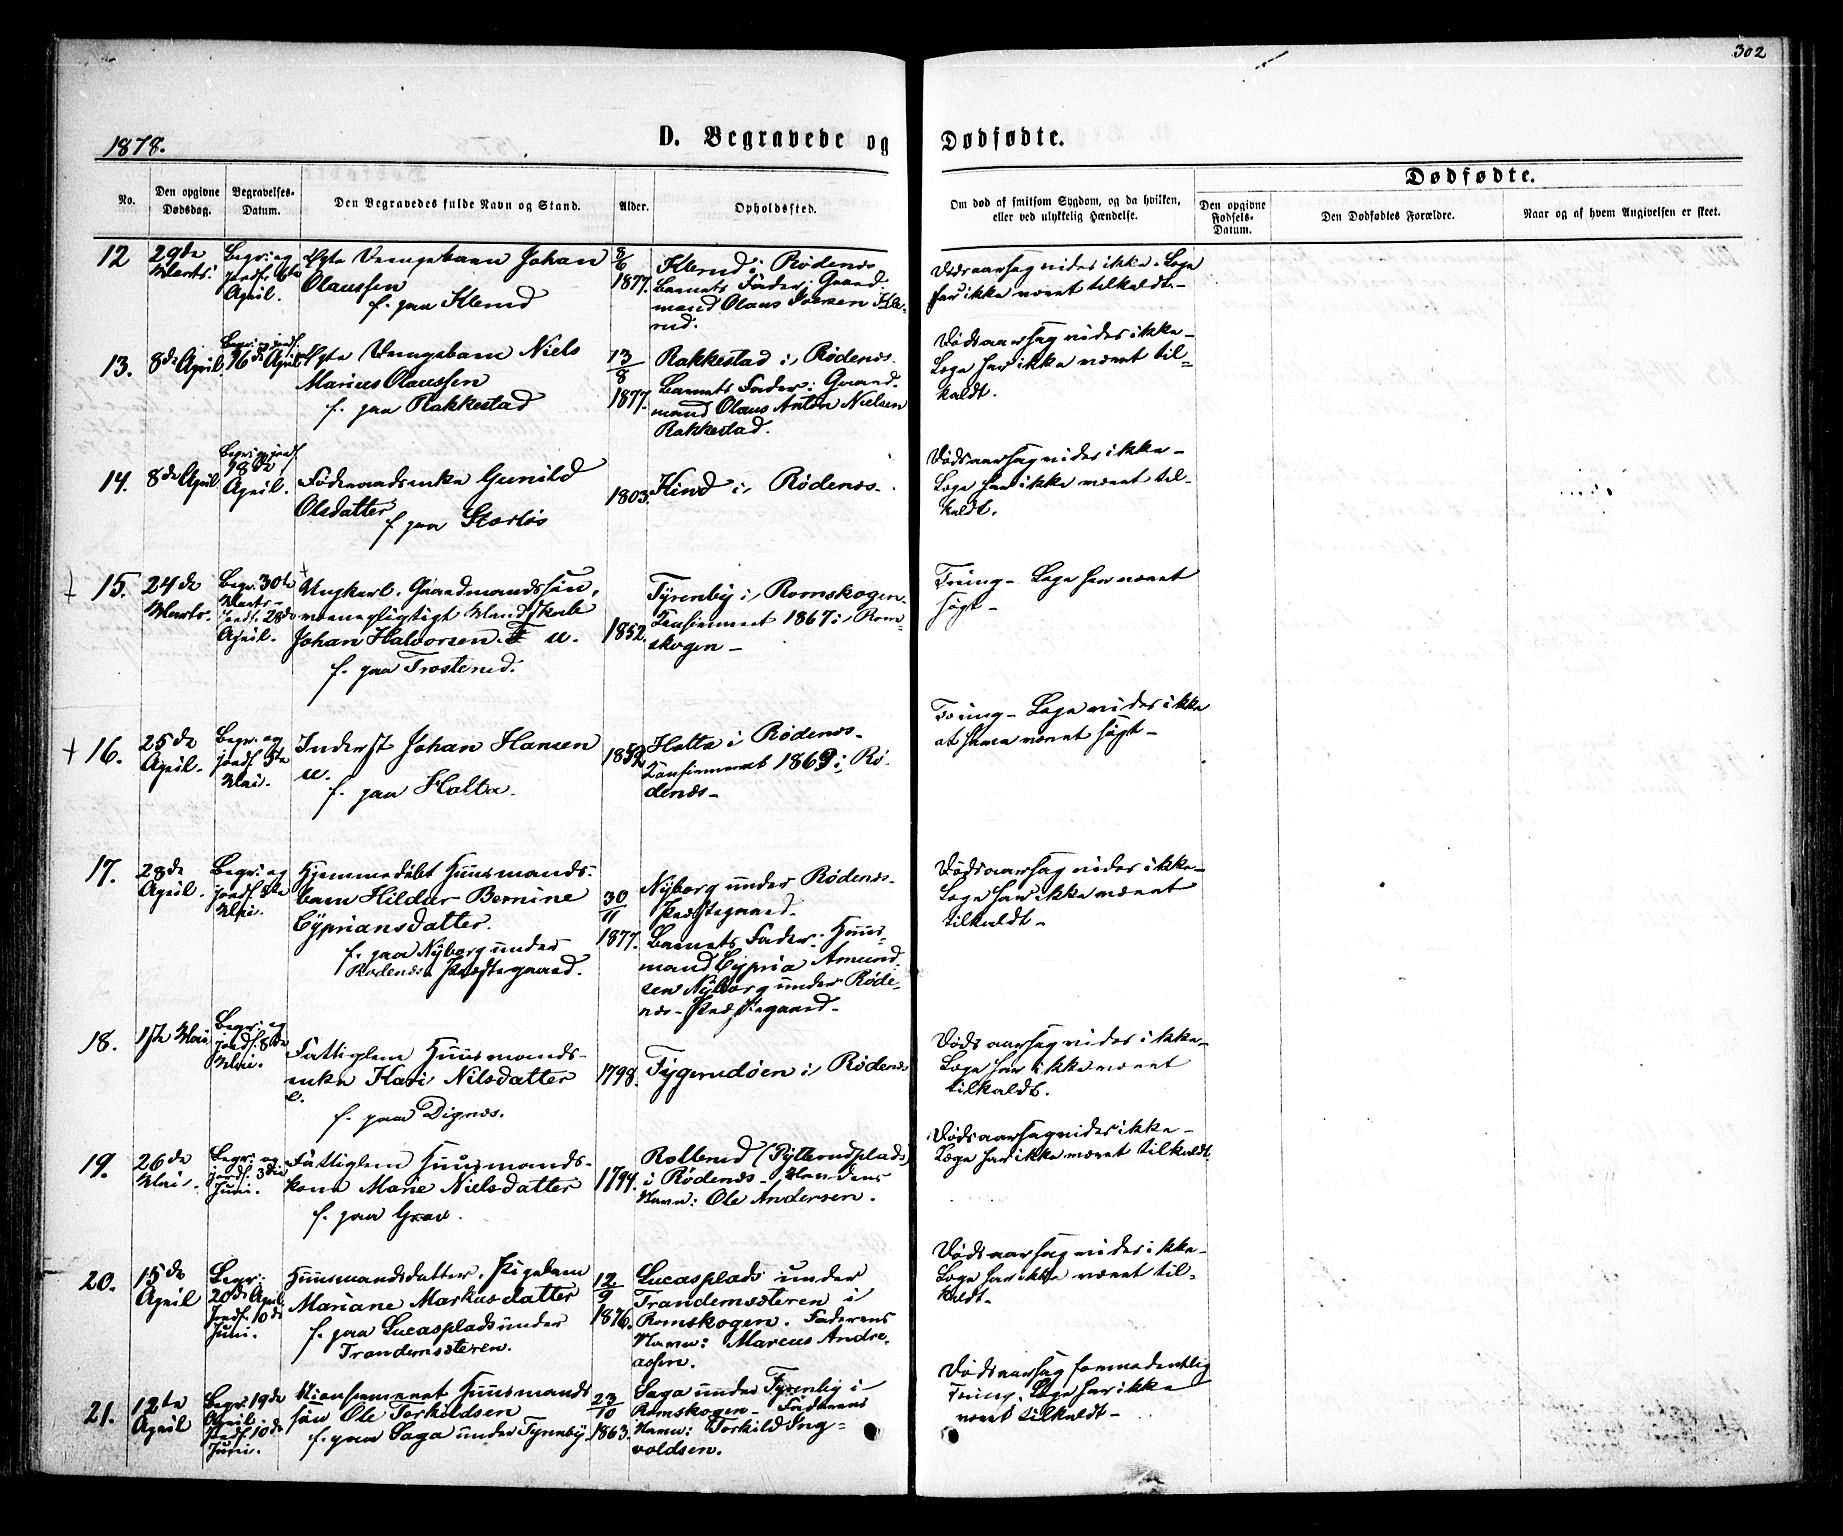 302
1878.
D. Begravede og Dødfødte.
Dødfødte.
No.
Den opgivne Dødsdag.
Begravelses-Datum.
Den Begravedes fulde Navn og Stand.
Alder.
Opholdssted.
Om død af smitsom Sygdom, og da hvilken, eller ved ulykkelig Hændelse.
Den opgivne Fødsels-Datum.
Den Dødfødtes Forældre.
Naar og af hvem Angivelsen er skeet.
12
29de Marts.
Begr. og jordf. 6te April.
Ægte Drengebarn Johan
Olaussen
f. paa Klerud
8/6 1877.
Klerud i Rødenæs
Barnets Fader: Gaard-
mand Olaus Iversen Kle-
rud.
Dødsaarsag vides ikke. Læge
har ikke været tilkaldt.-
13.
8de April.
Begr. og jordf. 16de April
Ægte Drengebarn Niels
Marius Olaussen
f. paa Rakkestad
13/8 1877.
Rakkestad i Rødenæs.
Barnets Fader: Gaard-
mand Olaus Anton Nielsen
Rakkestad.
Dødsaarsag vides ikke-
Læge har ikke været til-
kaldt.
14.
8de April
Begr. og jordf. 18de April.
Føderaadsenke Gunild
Olsdatter
f. paa
1803.
Kind i Rødenæs.
Dødsaarsag vides ikke-
Læge har ikke været til-
kaldt.
15.
24de Marts.
Begr. 30te Marts-
Jordf. 28de April.
Ungkarl. Gaardmandssøn,
værnepligtigt Mandskab
Johan Halvorsen. u.
f. paa Trosterud.
1852.
Tyrenby i Romskogen.
Konfirmeret 1867 i Rom-
skogen-
Tæring- Læge har været
søgt-
16.
25de April.
Begr. og jordf. 5te Mai.
Inderst Johan Hansen
u.
f. paa Holta.
1852
Holta i Rødenæs-
Konfirmeret 1869 i Rø-
denæs-
Tæring- Læge vides ikke
at have været søgt-
17.
28de April.
Begr. og jordf. 8de Mai.
Hjemmedøbt Huusmands-
barn Hildur Bernine
Cypriansdatter.
f. paa Nyborg under
Rødenæs Præstegaard.
30/11 1877.
Nyborg under Rødenæs-
Præstegaard.
Barnets Fader: Huus-
mand Cypria Amund-
sen Nyborg under Røde-
næs-Præstegaard-
Dødsaarsag vides ikke-
Læge har ikke været
tilkaldt-
18.
1ste Mai
Begr. og jordf. 8de Mai.
Fattiglem Huusmands-
enke Kari Nilsdatter
e.
f. paa Dignæs.
1798.
Tygerudøen i Rødenæs
Dødsaarsag vides ikke-
Læge har ikke været
tilkaldt.
19.
26de Mai.
Begr. og jordf. 3die Juni.
Fattiglem Huusmands-
kone Marie Nielsdatter
f. paa Grav.
1794.
Rollerud (Rytterudplads)
i Rødenæs- Mandens
Navn: Ole Andersen.
Dødsaarsag vides ikke-
Læge har ikke været tilkaldt.
20.
15de April
Begr: 20de April.
Jordf. 10de Juni.
Huusmandsdatter, Pigebarn
Mariane Markusdatter
f. paa Lucasplads under
Trandemsæteren.
12/9 1876.
Lucasplads under
Trandemsæteren i
Romskogen. Faderens
Navn: Marcus Andre-
asen.
Dødsaarsag vides ikke-
Læge har ikke været til-
kaldt-
21.
12te April
Begr. 19de April.
Jordf. 10de Juni.
Ukonfirmeret Huusmands
søn Ole Torkildsen
f. paa Saga under Tyrenby.
23/10 1863.
Saga under Tyrenby i
Romskogen- Faderens
Navn: Torkild Ing-
voldsen.
Dødsaarsag formodentlig
Tæring. Læge har ikke
været tilkaldt-